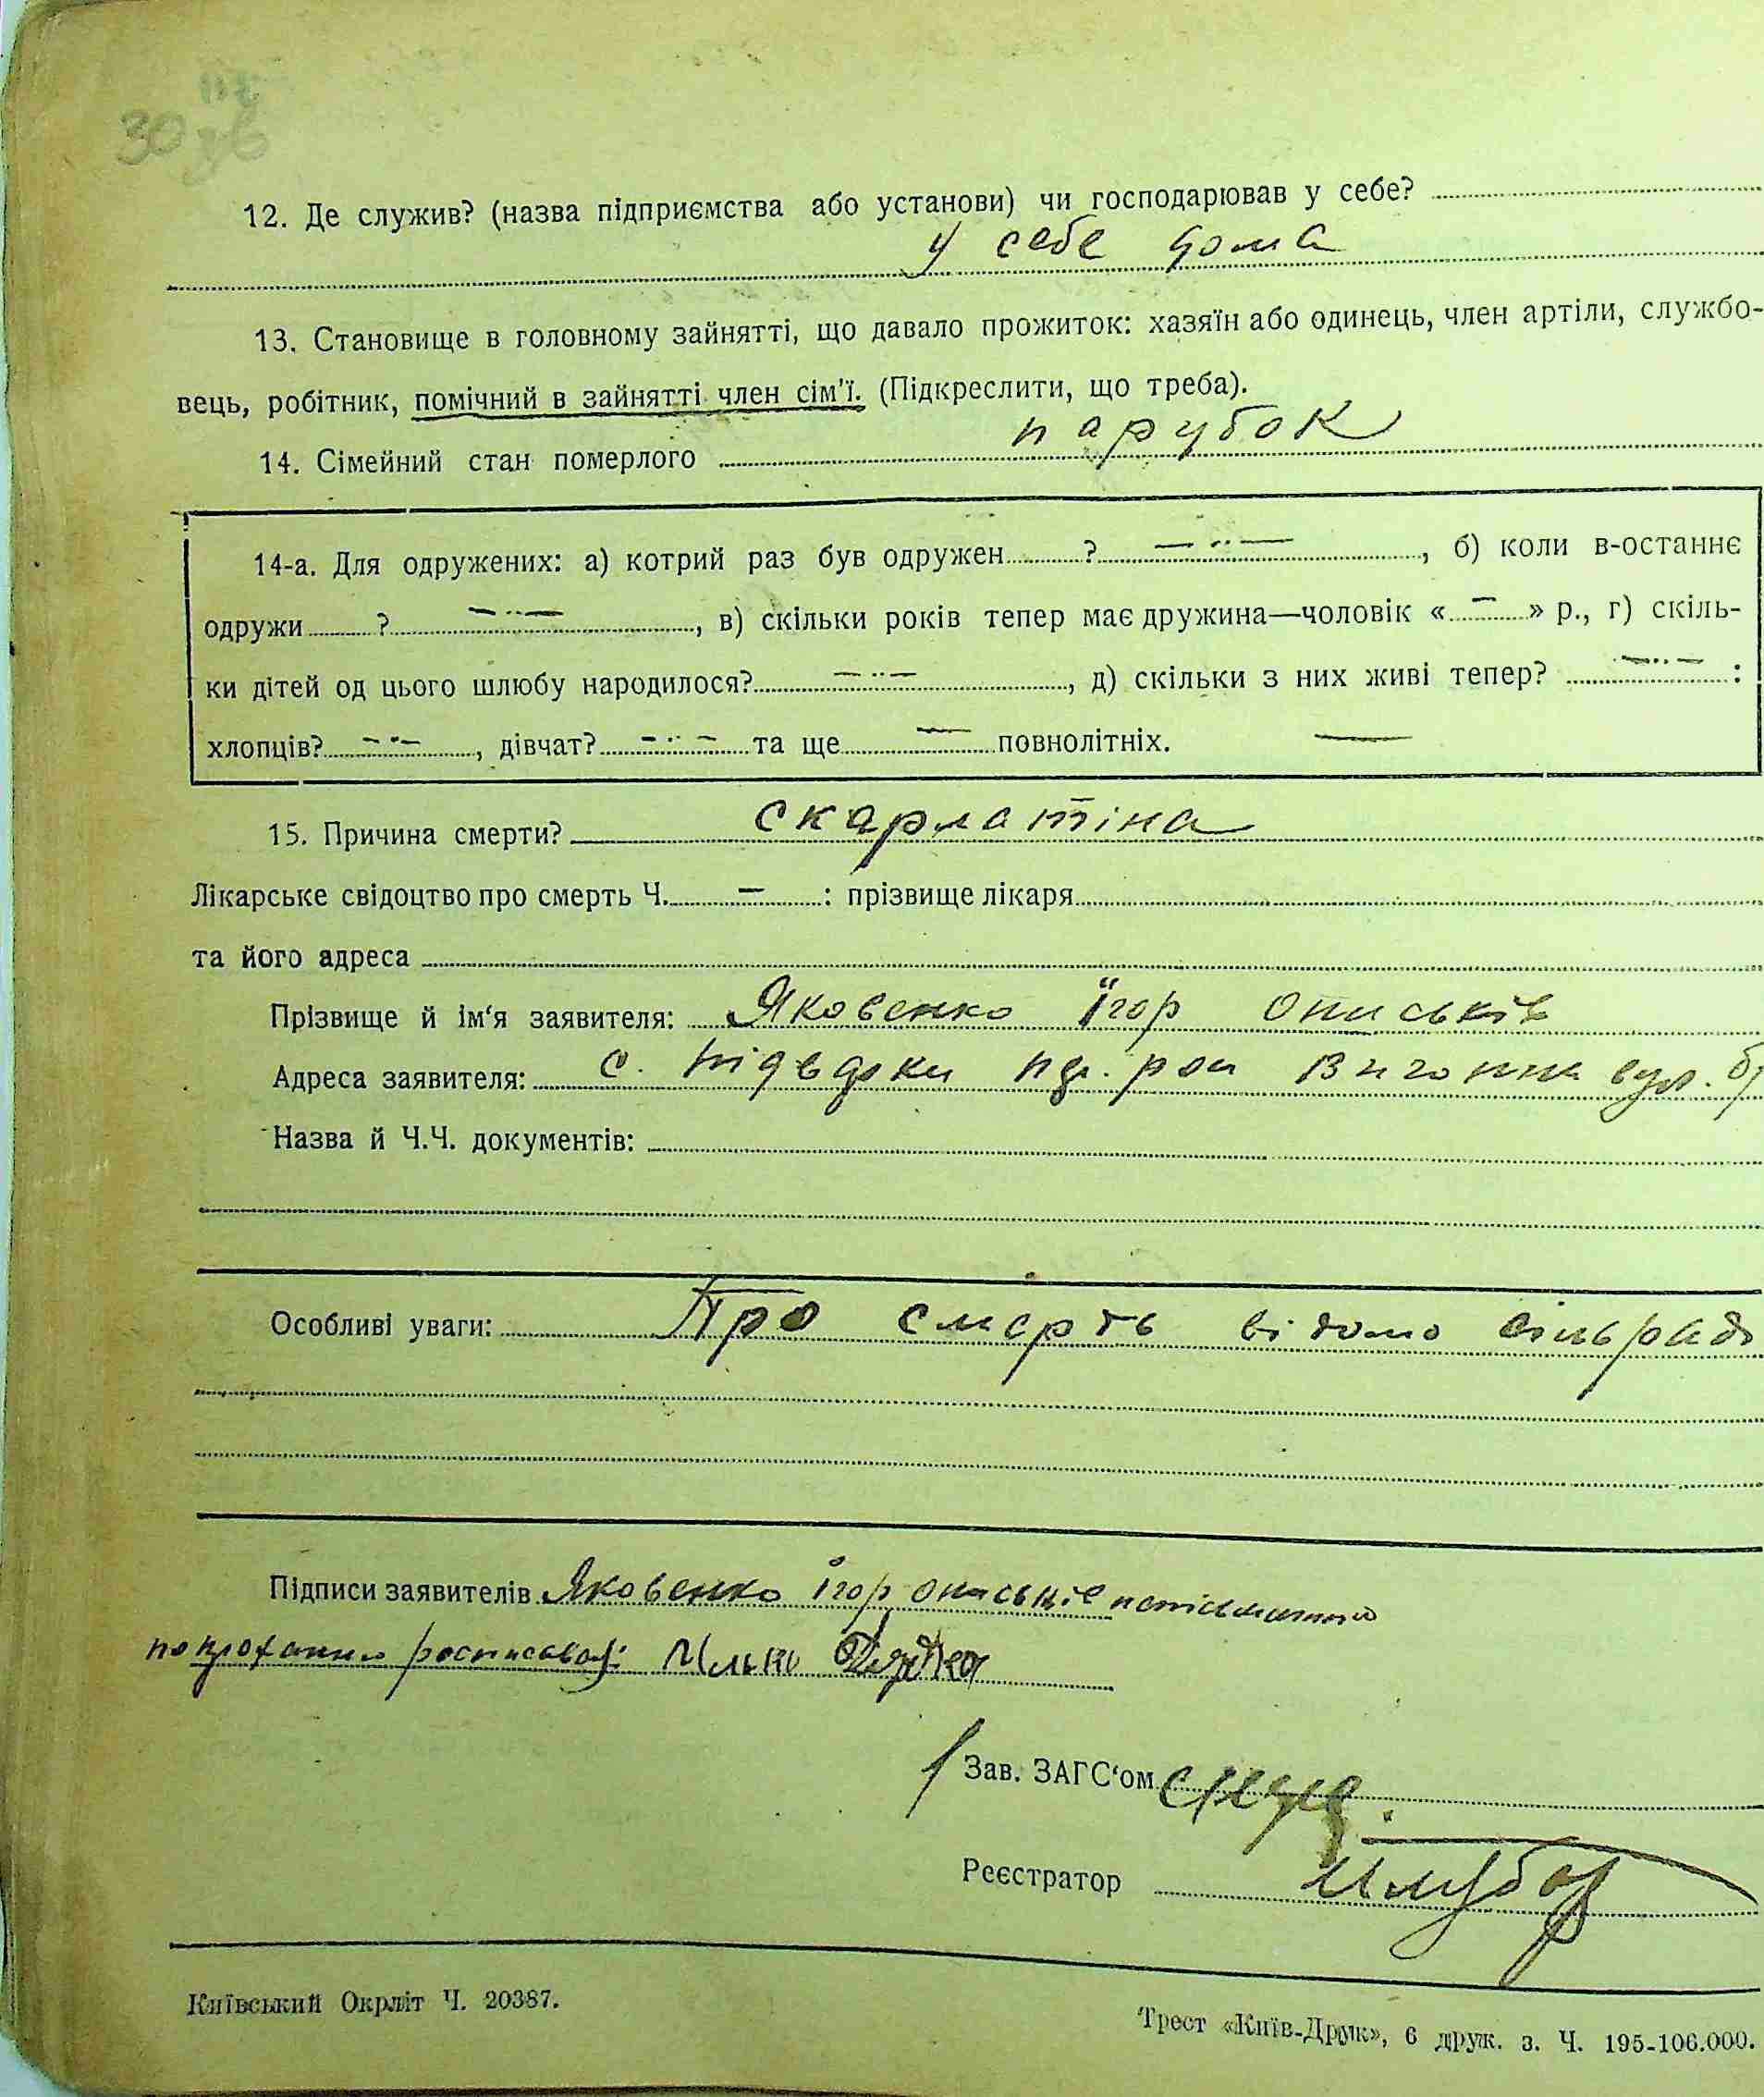 30 зв
12. Де служив? (назва підприємства або установи) чи господарював у себе?
у себе дома
13. Становище в головному зайнятті, що давало прожиток: хазяїн або одинець, член артіли, службо-
вець, робітник, помічний в зайнятті член сім'ї. (Підкреслити, що треба).
14. Сімейний стан померлого парубок
14-а. Для одружених: а) котрий раз був одружен ? — " —, б) коли в-останнє
одружи ? — " —, в) скільки років тепер має дружина—чоловік « — » р., г) скіль-
ки дітей од цього шлюбу народилося? — " —, д) скільки з них живі тепер? — " — :
хлопців? — " —, дівчат? — " — та ще — повнолітніх. —
15. Причина смерти? скарлатіна
Лікарське свідоцтво про смерть Ч. — : прізвище лікаря
та його адреса
Прізвище й ім‘я заявителя: Яковенко Їгор
Адреса заявителя: с.
Назва й Ч.Ч. документів:
Особливі уваги: Про смерть відомо сільраді
Підписи заявителів Яковенко Їгор
по проханню
Зав. ЗАГС‘ом
Реєстратор
Київський Окрліт Ч. 20387.
Трест «Київ-Друк», 6 друк. з. Ч. 195-106.000.